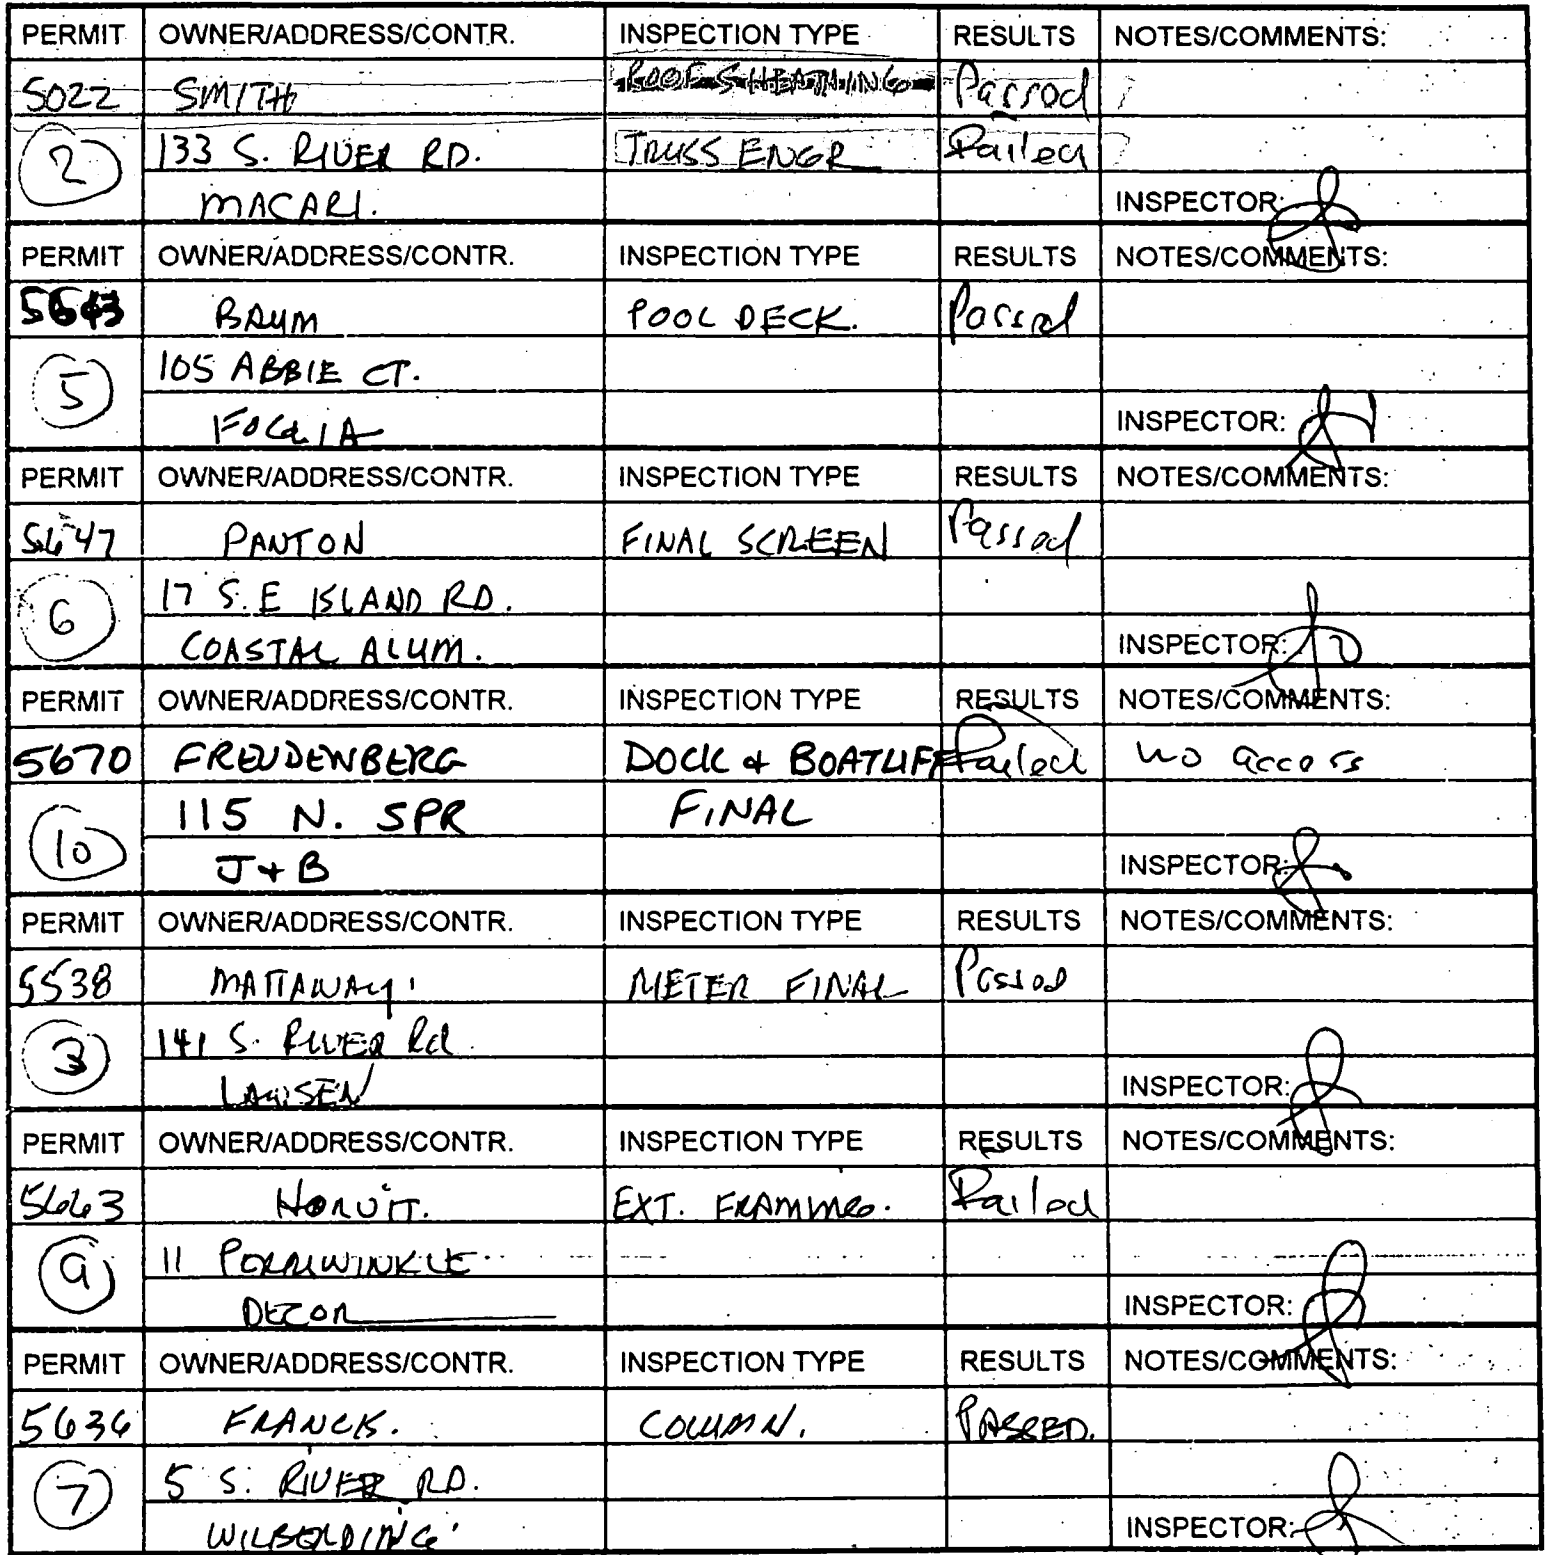 PERMIT OWNER/ADDRESS/CONTR. INSPECTION TYPE RESULTS NOTES/COMMENTS:
5022 SMITH ROOF SHEATHING Passed
2 133 S. RIVER RD. TRUSS ENGR Failed
MACARI. INSPECTOR:
PERMIT OWNER/ADDRESS/CONTR. INSPECTION TYPE RESULTS NOTES/COMMENTS:
5643 BAUM POOL DECK. Passed
5 105 ABBIE CT.
FOGLIA INSPECTOR:
PERMIT OWNER/ADDRESS/CONTR. INSPECTION TYPE RESULTS NOTES/COMMENTS:
5647 PANTON FINAL SCREEN Passed
6 17 S.E ISLAND RD.
COASTAL ALUM. INSPECTOR:
PERMIT OWNER/ADDRESS/CONTR. INSPECTION TYPE RESULTS NOTES/COMMENTS:
5670 FREUDENBERG DOCK & BOATLIFT Failed no access
10 115 N. SPR FINAL
J + B INSPECTOR:
PERMIT OWNER/ADDRESS/CONTR. INSPECTION TYPE RESULTS NOTES/COMMENTS:
5538 MATTAWAY METER FINAL Passed
3 141 S. RIVER Rd.
INSPECTOR:
PERMIT OWNER/ADDRESS/CONTR. INSPECTION TYPE RESULTS NOTES/COMMENTS:
5663 HORVIT. EXT. FRAMING. Failed
9 11 PERRIWINKLE
DECOR INSPECTOR:
PERMIT OWNER/ADDRESS/CONTR. INSPECTION TYPE RESULTS NOTES/COMMENTS:
5636 FRANCK. COLUMN. PASSED.
7 5 S. RIVER RD.
WILBERDING INSPECTOR: